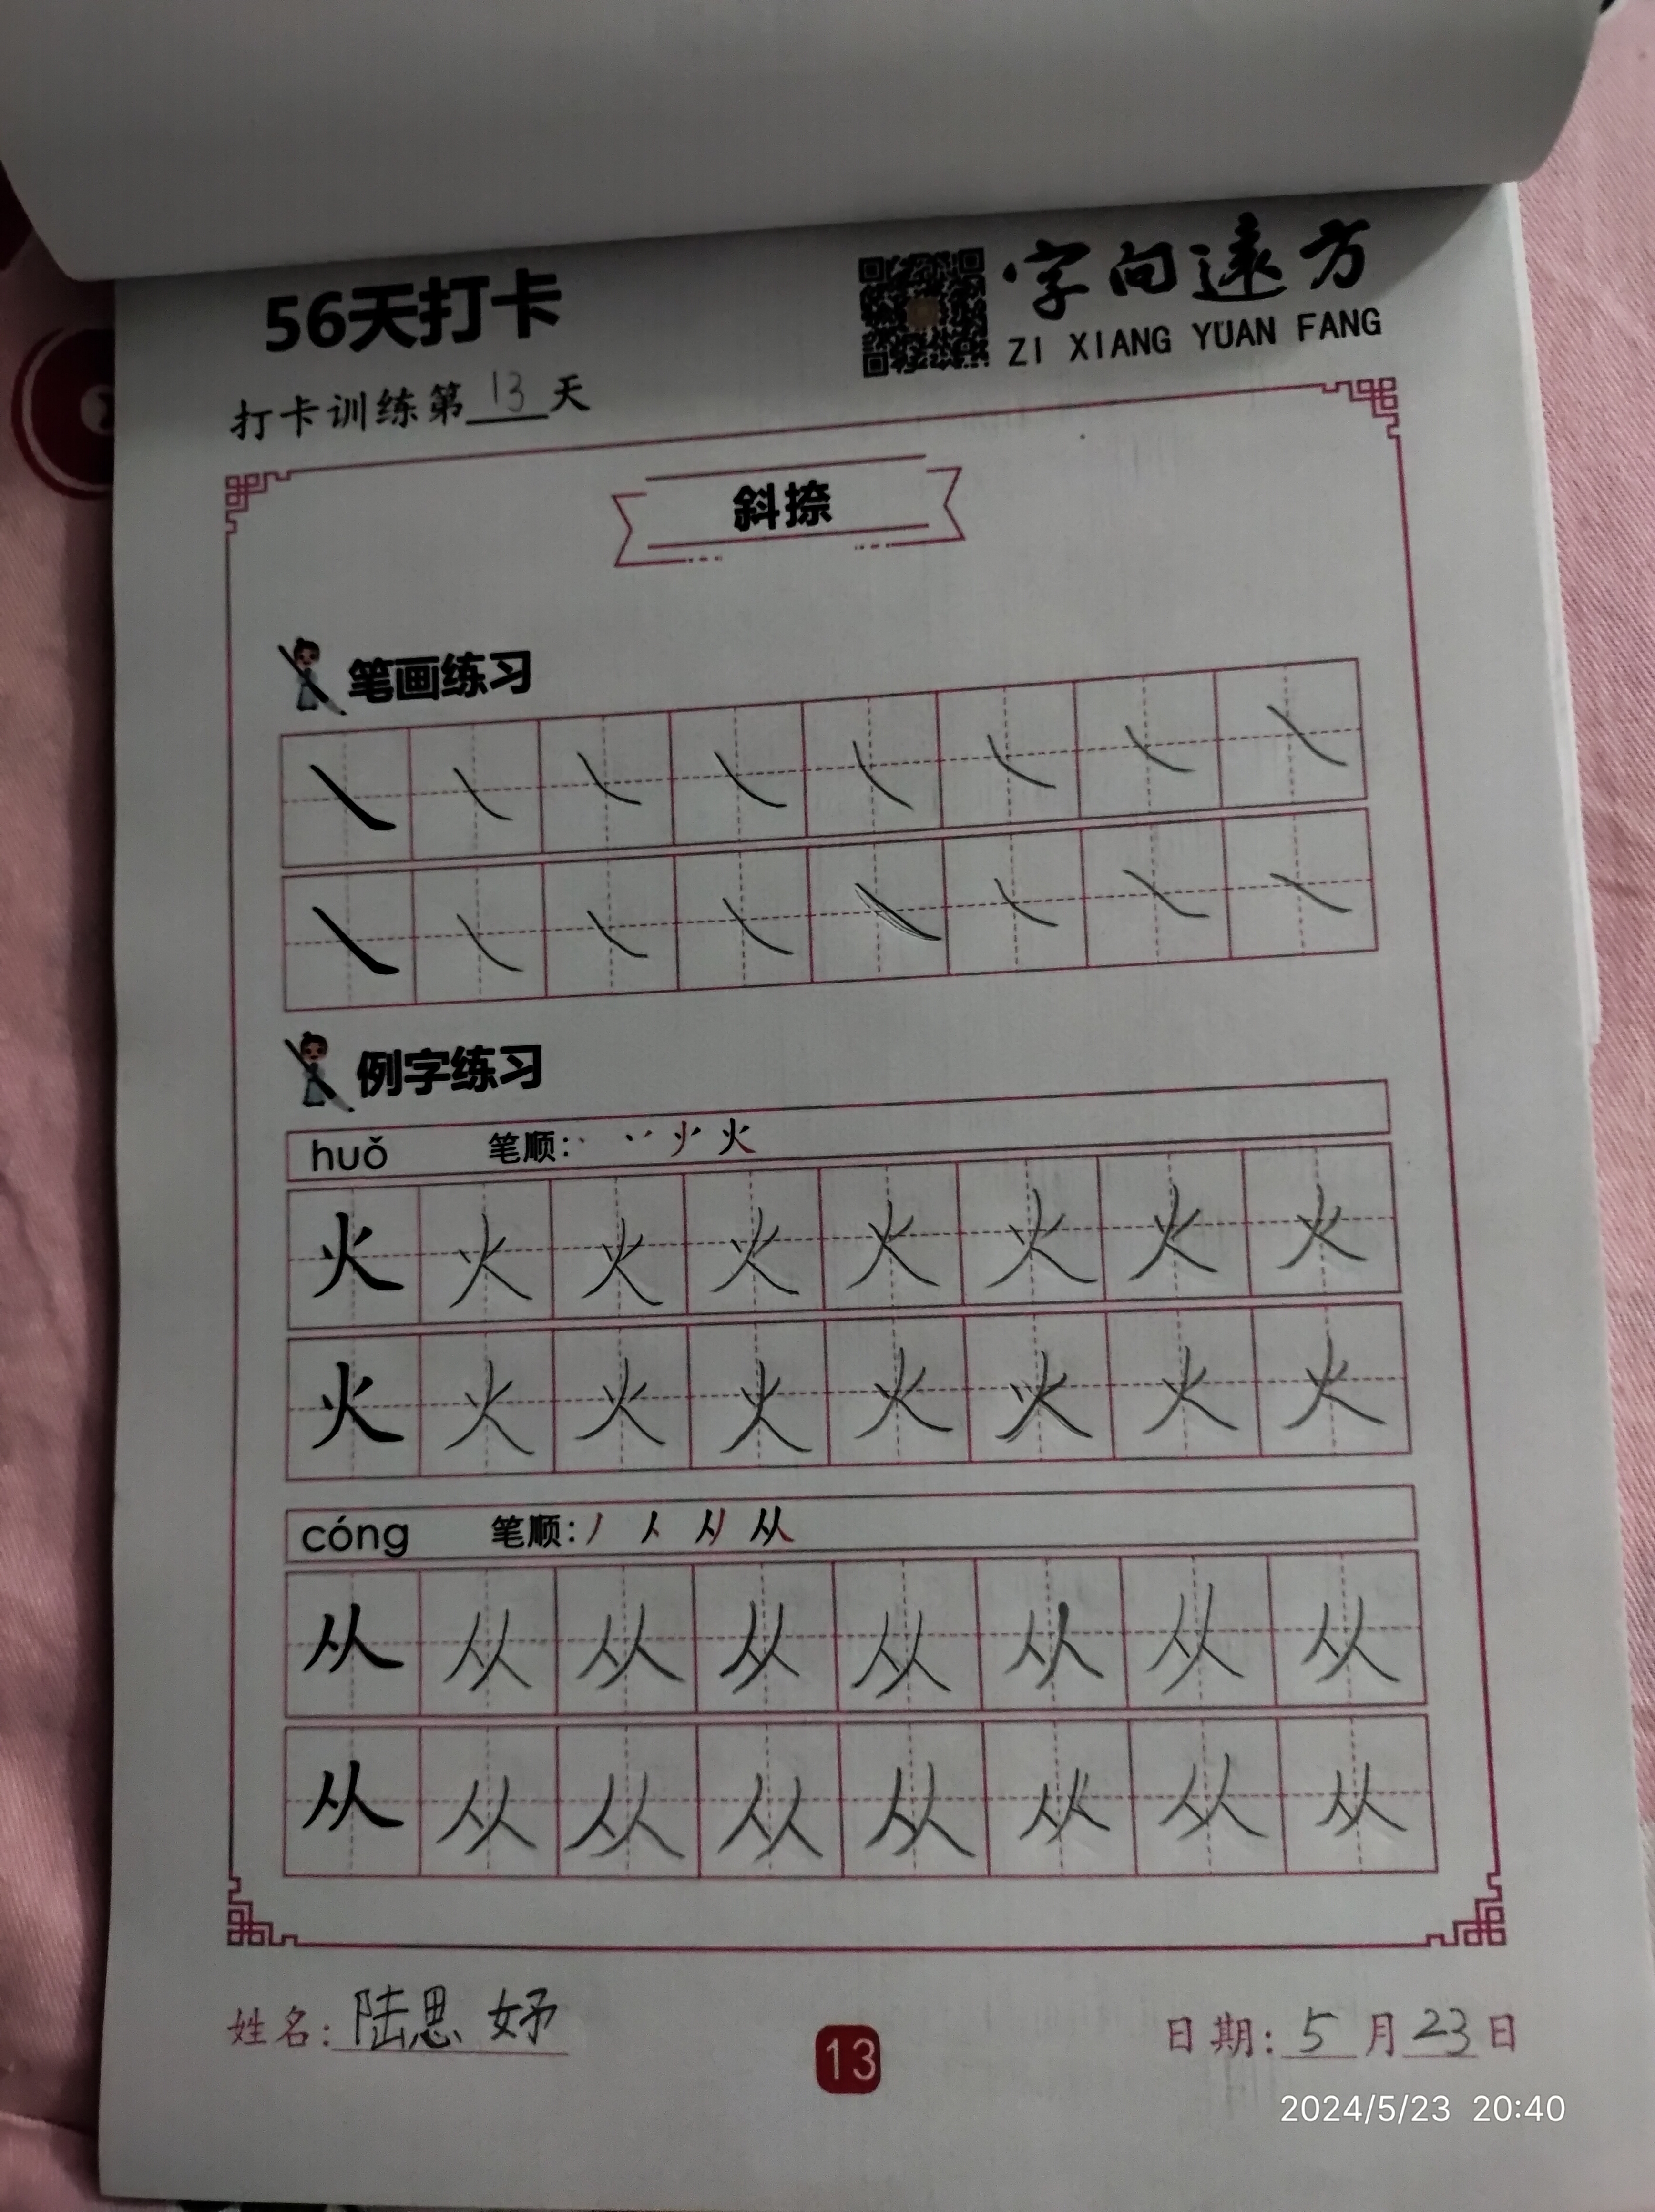 56天打卡
字向遠方
ZI XIANG YUAN FANG
打卡训练第13天
斜捺
笔画练习
㇏ ㇏ ㇏ ㇏ ㇏ ㇏ ㇏ ㇏
㇏ ㇏ ㇏ ㇏ ㇏ ㇏ ㇏ ㇏
例字练习
huǒ 笔顺: 火
火 火 火 火 火 火 火 火
火 火 火 火 火 火 火 火
cóng 笔顺: 丿 人 从
从 从 从 从 从 从 从 从
从 从 从 从 从 从 从 从
姓名: 陆思妤
13
日期: 5月23日
2024/5/23 20:40